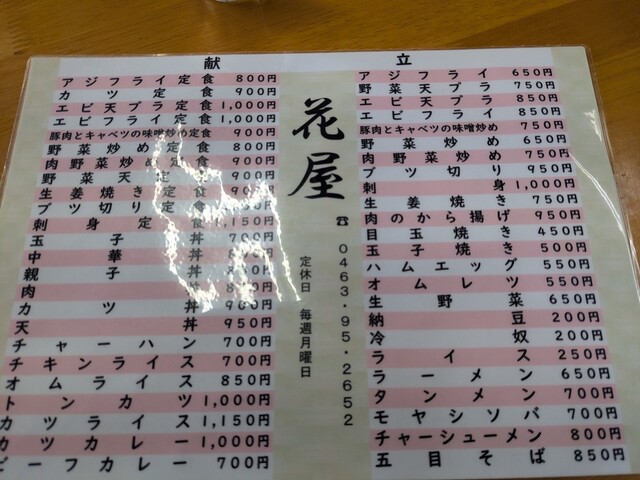 献立
アジフライ定食 800円
カツ定食 900円
エビ天プラ定食 1,000円
エビフライ定食 1,000円
豚肉とキャベツの味噌炒め定食 900円
野菜炒め定食 800円
肉野菜炒め定食 900円
野菜天定食 900円
生姜焼き定食 900円
ブツ切り定食
刺身定食 1,150円
玉子丼 700円
中華丼
親子丼
肉丼
カツ丼 900円
天丼 950円
チャーハン 700円
チキンライス 700円
オムライス 850円
トンカツ 1,000円
カツライス 1,150円
カツカレー 1,000円
ビーフカレー 700円
花屋
☎ 0463・95・2652
定休日 毎週月曜日
アジフライ 650円
野菜天プラ 750円
エビ天プラ 850円
エビフライ 850円
豚肉とキャベツの味噌炒め 750円
野菜炒め 650円
肉野菜炒め 750円
ブツ切り 950円
刺身 1,000円
生姜焼き 750円
肉のから揚げ 950円
目玉焼き 450円
玉子焼き 500円
ハムエッグ 550円
オムレツ 550円
生野菜 650円
納豆 200円
冷奴 200円
ライス 250円
ラーメン 650円
タンメン 700円
モヤシソバ 700円
チャーシューメン 800円
五目そば 850円